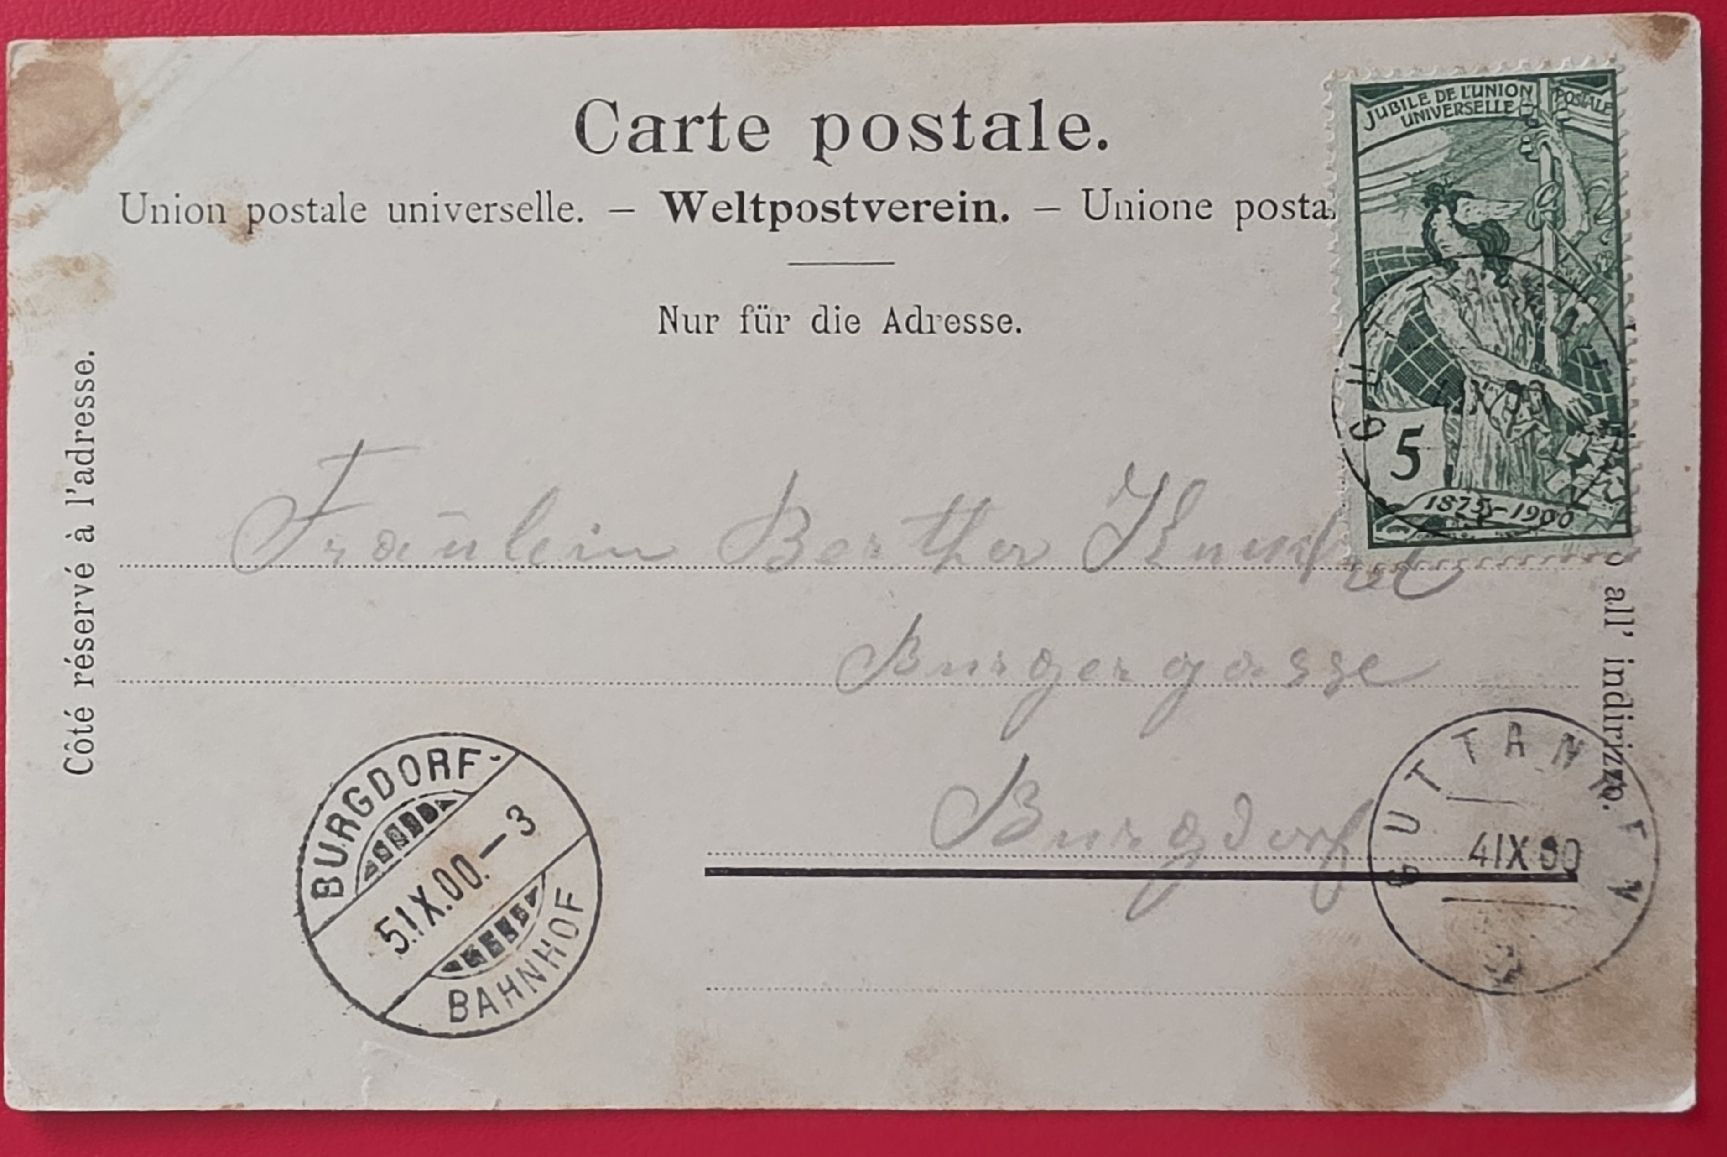 Carte postale.
JUBILE DE L'UNION POSTALE
UNIVERSELLE
Union postale universelle. – Weltpostverein. – Unione posta
Nur für die Adresse.
Côté réservé à l'adresse.
5
1875–1900
Fräulein Bertha
Burgergasse
Burgdorf
all' indirizzo.
BURGDORF
5.IX.00.–3
BAHNHOF
GUTTANNEN
4 IX 00